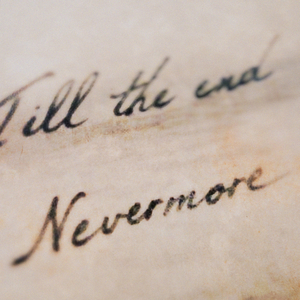 Till the end
Nevermore